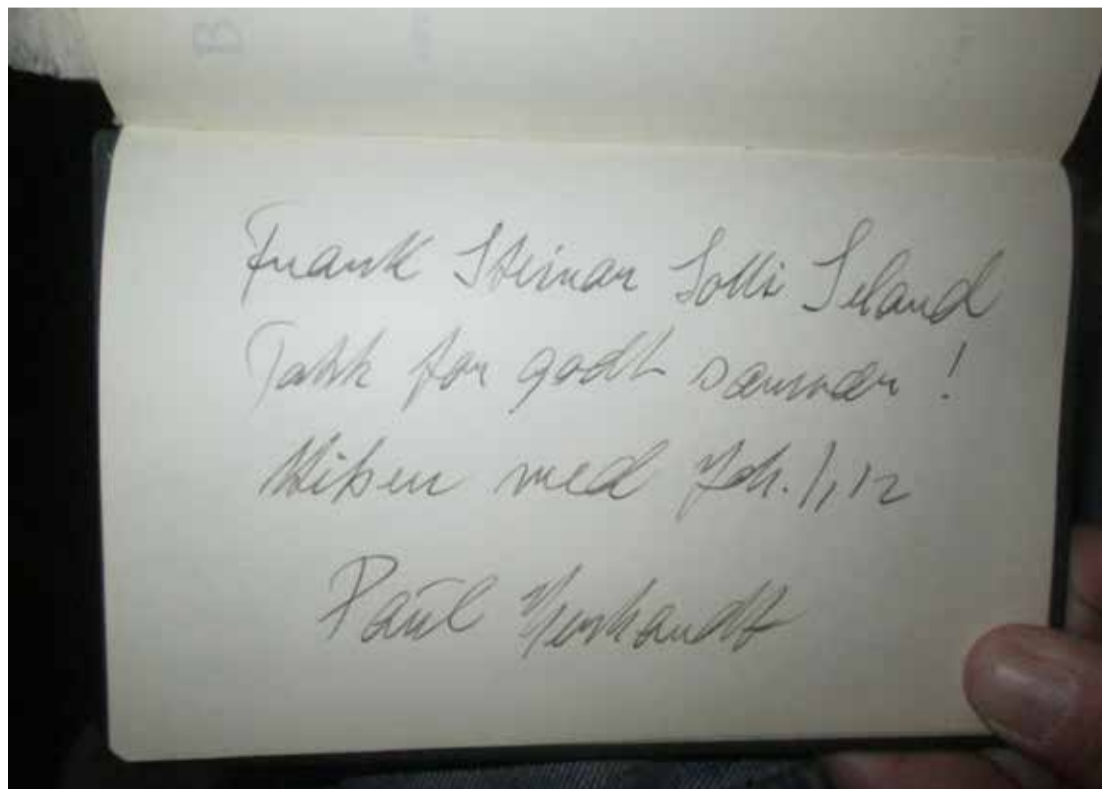 Frank Steinar Solli Seland
Takk for godt samvær!
Hilsen med Joh. 1,12
Paul